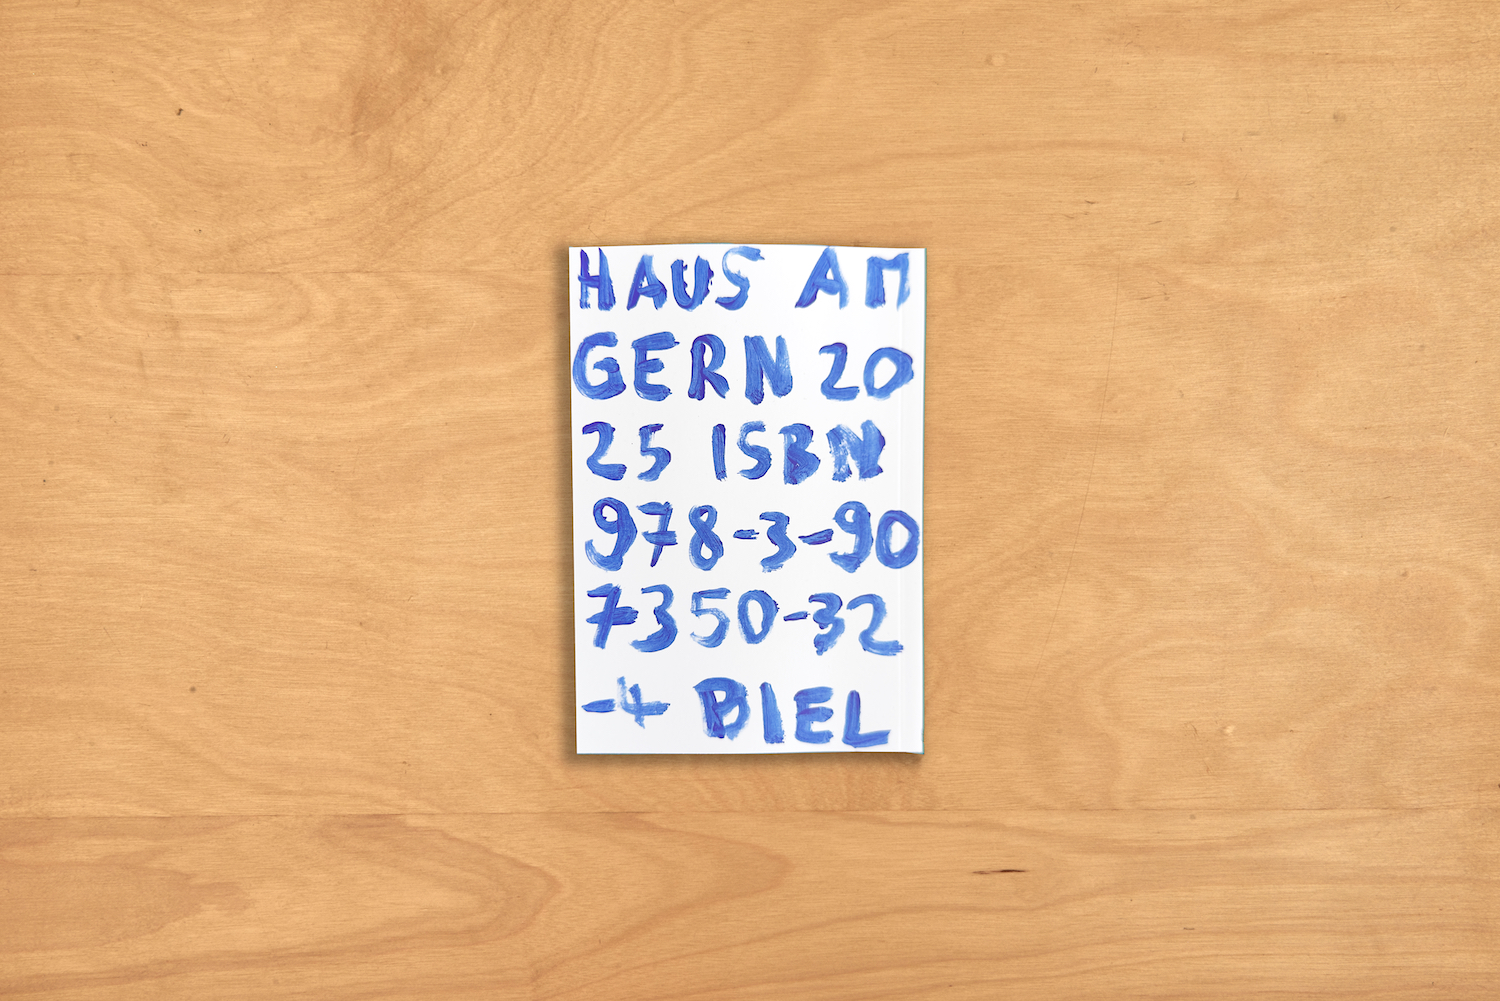 HAUS AM
GERN 20
25 ISBN
978-3-90
7350-32
-4 BIEL